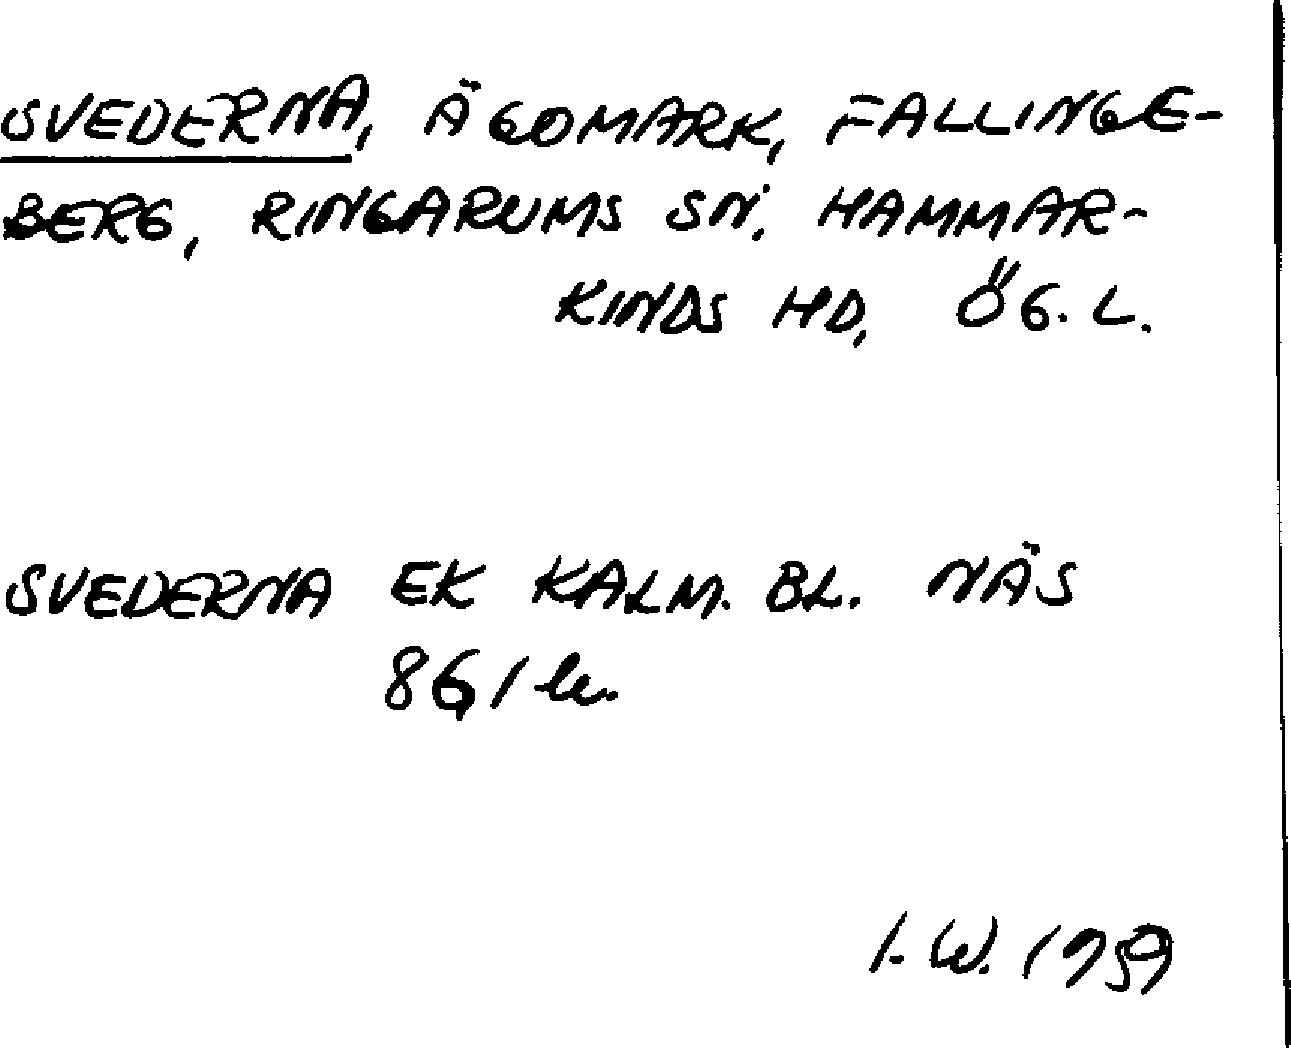 SVEDERNA, ÄGOMARK, FALLINGE-
BERG, RINGARUMS SN. HAMMAR-
KINDS HD, ÖG. L.
SVEDERNA EK KALM. BL. NÄS
1959